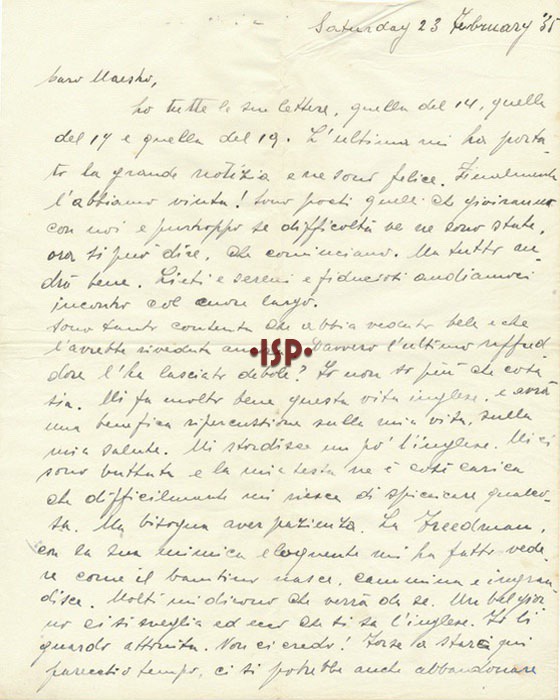 Saturday 23 February '35
Caro Maestro,
ho tutte le sue lettere, quella del 14, quella
del 17 e quella del 19. L'ultima mi ha porta-
to la grande notizia e ne sono felice. Finalmente
l'abbiamo vinta! Sono pochi quelli che gioiranno
con noi e purtroppo se difficoltà ve ne sono state,
ora si può dire, che cominciano. Ma tutto an-
drà bene. Lieti e sereni e fiduciosi andiamoci
incontro col cuore largo.
Sono tanto contenta che abbia veduto bele e che
l'avrebbe riveduta Davvero l'ultimo raffred-
dore l'ha lasciato debole? Io non so più che cosa
sia. Mi fa molto bene questa vita inglese, e avrà
una benefica ripercussione sulla mia vita, sulla
mia salute. Mi stordisce un po' l'inglese. Mi ci
sono buttata e la mia testa ne è così carica
che difficilmente mi riesce di spiccicare qualco-
sa. Ma bisogna aver pazienza. La Freedman,
con la sua mimica eloquente mi ha fatto vede-
re come il bambino nasce, cammina e ingran-
disce. Molti mi dicono che verrà da se. Un bel gior-
no ci si sveglia ed ecco che si sa l'inglese. Io li
guardo attonita. Non ci credo! Forse a starci qui
parecchio tempo, ci si potrebbe anche abbandonare
·ISP·